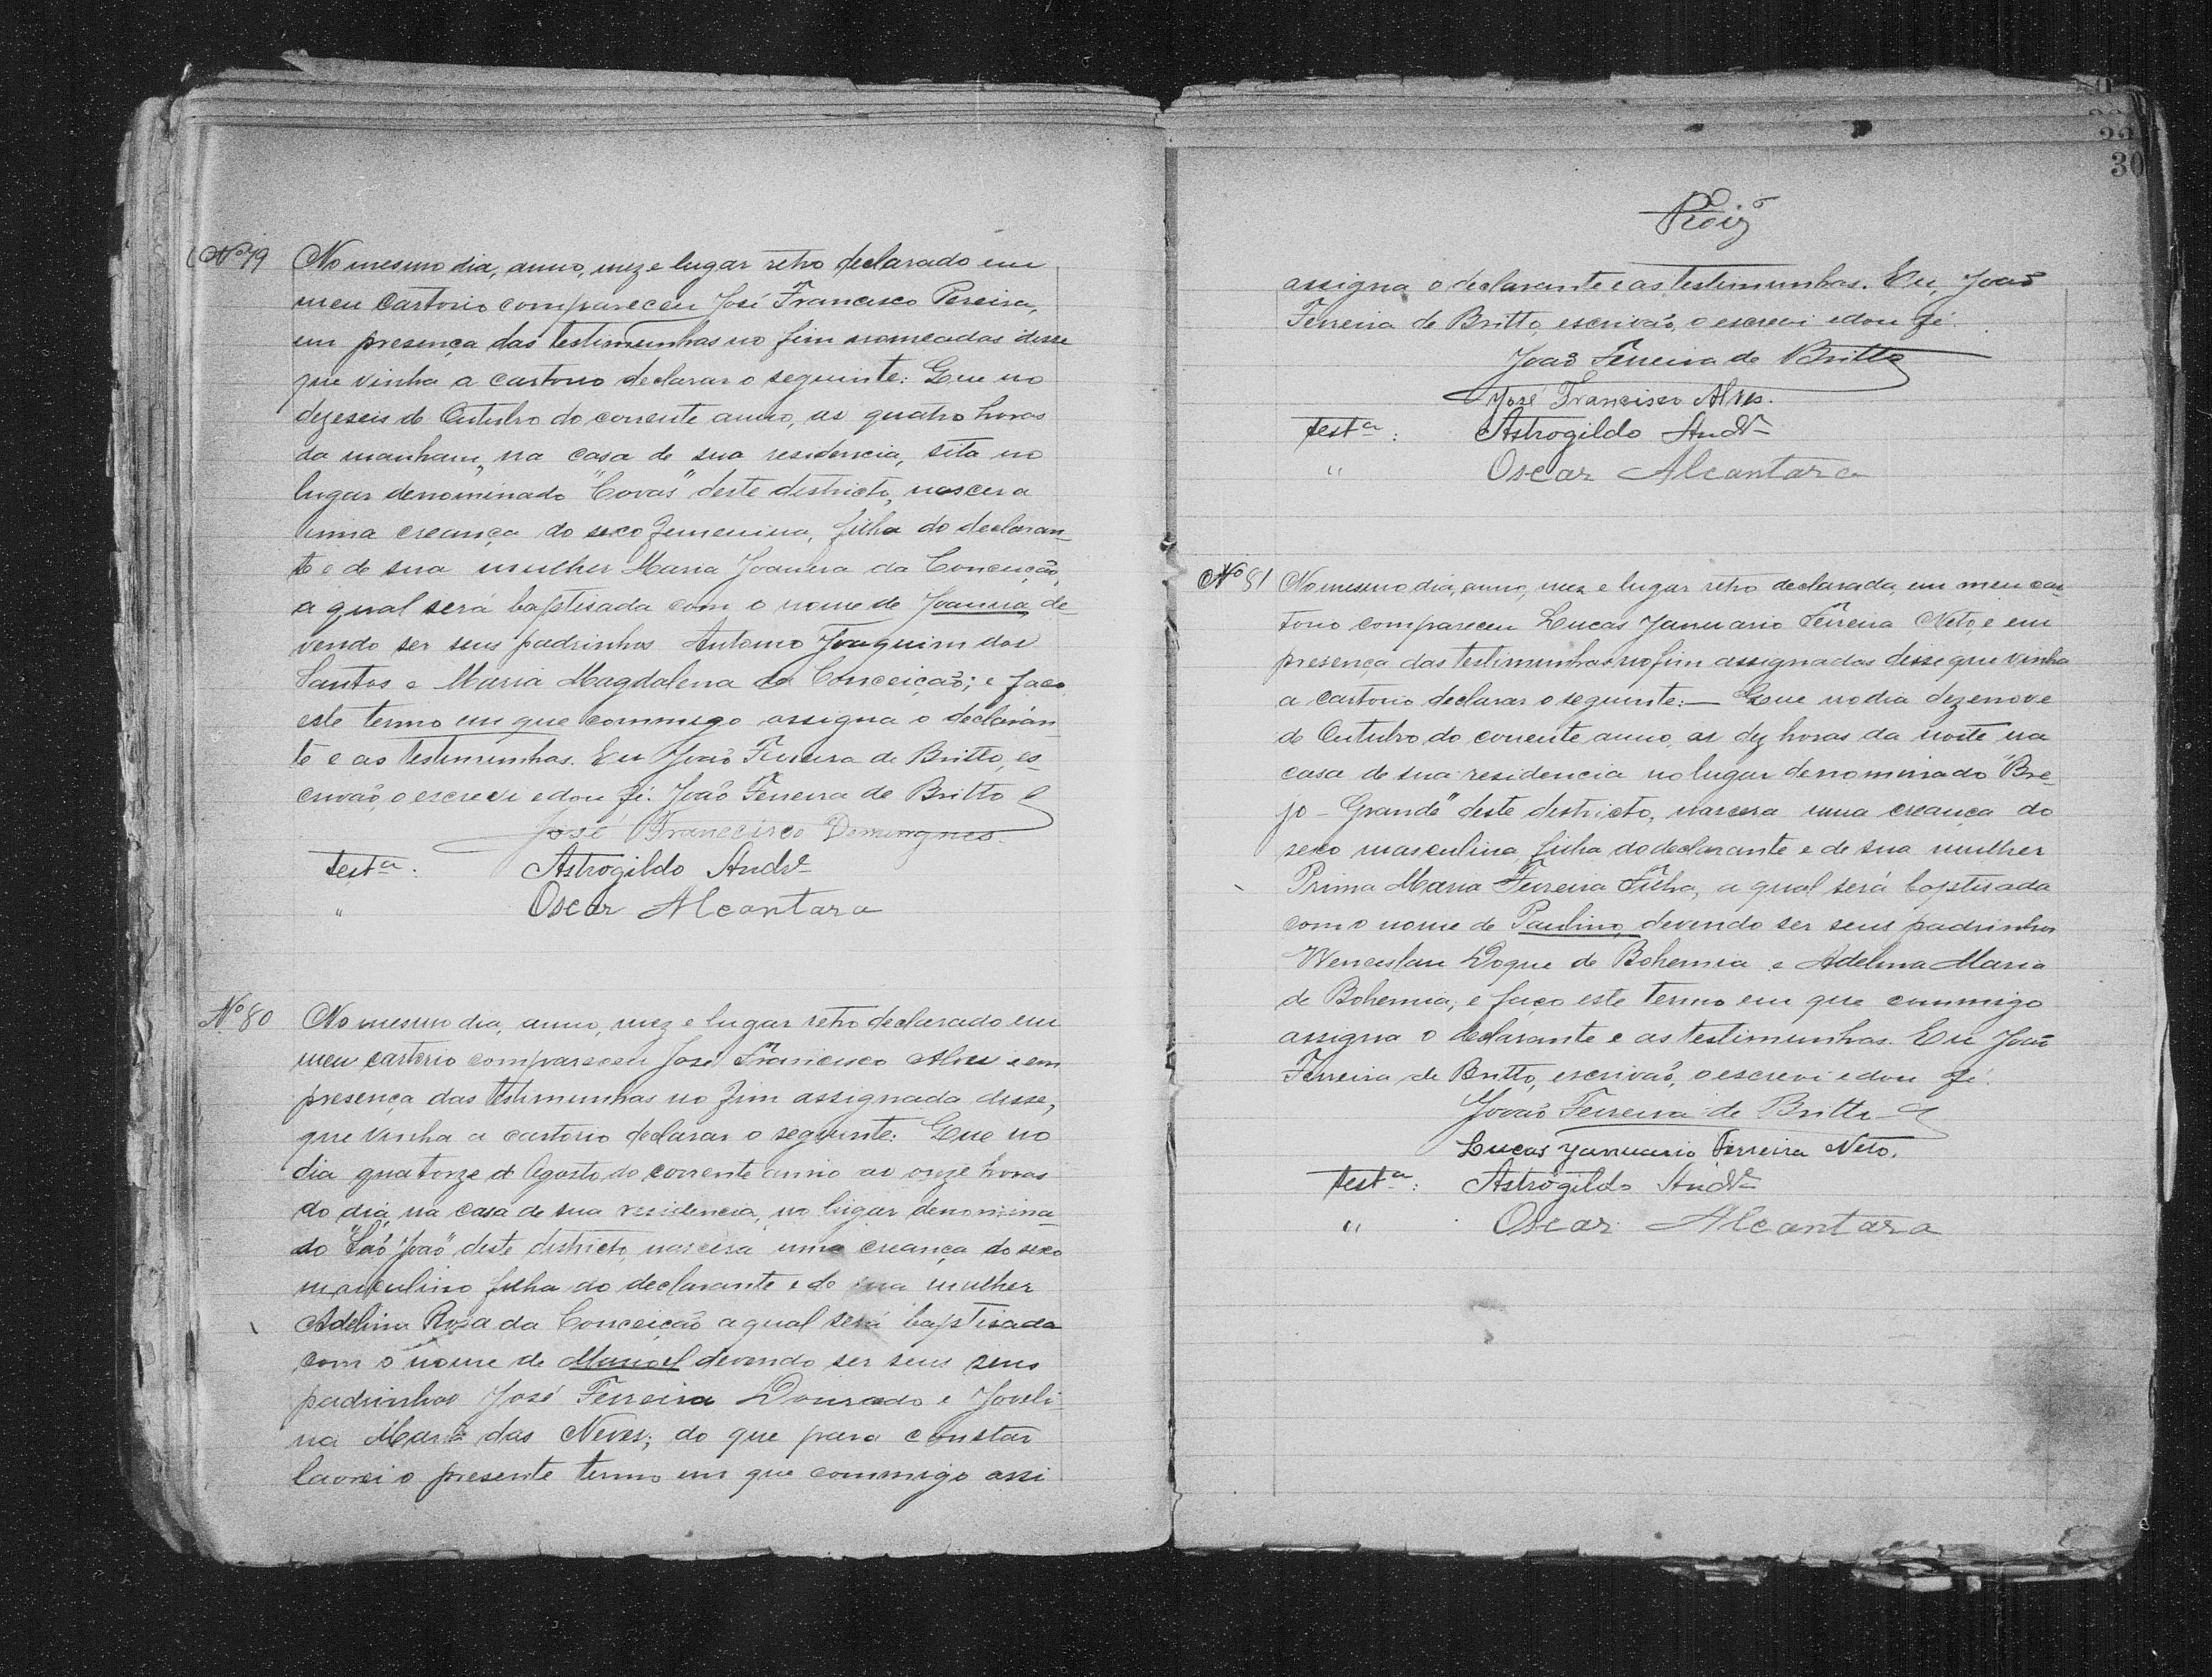 Nº 79 No mesmo dia, anno, mez e lugar retro declarado em
meu cartorio compareceu José Francisco Pereira,
em presença das testimunhas no fim nomeadas disse
que vinha a cartorio declarar o seguinte: Que no
dezeseis de Outubro do corrente anno, as quatro horas
da manham, na casa de sua residencia, sita no
lugar denominado "Covas" deste districto, nascera
uma creança do sexo femenina, filha do declaran-
te e de sua mulher Maria da Conceição,
a qual será baptisada com o nome de Joanna, de-
vendo ser seus padrinhos Antonio Joaquim dos
Santos e Maria Magdalena da Conceição; e faço
este termo em que commigo assigna o declaran-
te e as testimunhas. Eu João Ferreira de Britto, es-
crivão, o escrevi e dou fé. João Ferreira de Britto
José Francisco Domingues
Testª: Astrogildo Andᵉ
" Oscar Alcantara
Nº 80 No mesmo dia, anno, mez e lugar retro declarado em
meu cartorio compareceu José Francisco Alves e em
presença das testimunhas no fim assignada disse,
que vinha a cartorio declarar o seguinte: Que no
dia quatorze de Agosto do corrente anno as onze horas
do dia, na casa de sua residencia, no lugar denomina-
do "São João" deste districto, nascera uma creança do sexo
masculino filha do declarante e de sua mulher
Adelina Rosa da Conceição a qual será baptisada
com o nome de Manoel devendo ser seus seus
padrinhos José Ferreira Dourado e Joveli-
na Maria das Neves; do que para constar
lavrei o presente termo em que commigo assi
30
assigna o declarante e as testimunhas. Eu, João
Ferreira de Britto, escrivão, o escrevi e dou fé.
João Ferreira de Britto
José Francisco Alves.
Testª: Astrogildo Andᵉ
" Oscar Alcantara
Nº 81 No mesmo dia, anno, mez e lugar retro declarada, em meu car-
torio compareceu Lucas Januario Ferreira Neto, e em
presença das testimunhas no fim assignadas disse que vinha
a cartorio declarar o seguinte:— Que no dia dezenove
de Outubro do corrente anno, as dez horas da noite na
casa de sua residencia no lugar denominado "Bre-
jo - Grande" deste districto, nascera uma creança do
sexo masculina, filha do declarante e de sua mulher
Prima Maria Ferreira Filha, a qual será baptisada
com o nome de Paulino, devendo ser seus padrinhos
Wenceslau Roque de Bohemia e Adelina Maria
de Bohemia; e faço este termo em que commigo
assigna o declarante e as testimunhas. Eu João
Ferreira de Britto, escrivão, o escrevi e dou fé.
João Ferreira de Britto
Lucas Januario Ferreira Neto.
Testª: Astrogildo Andᵉ
" Oscar Alcantara